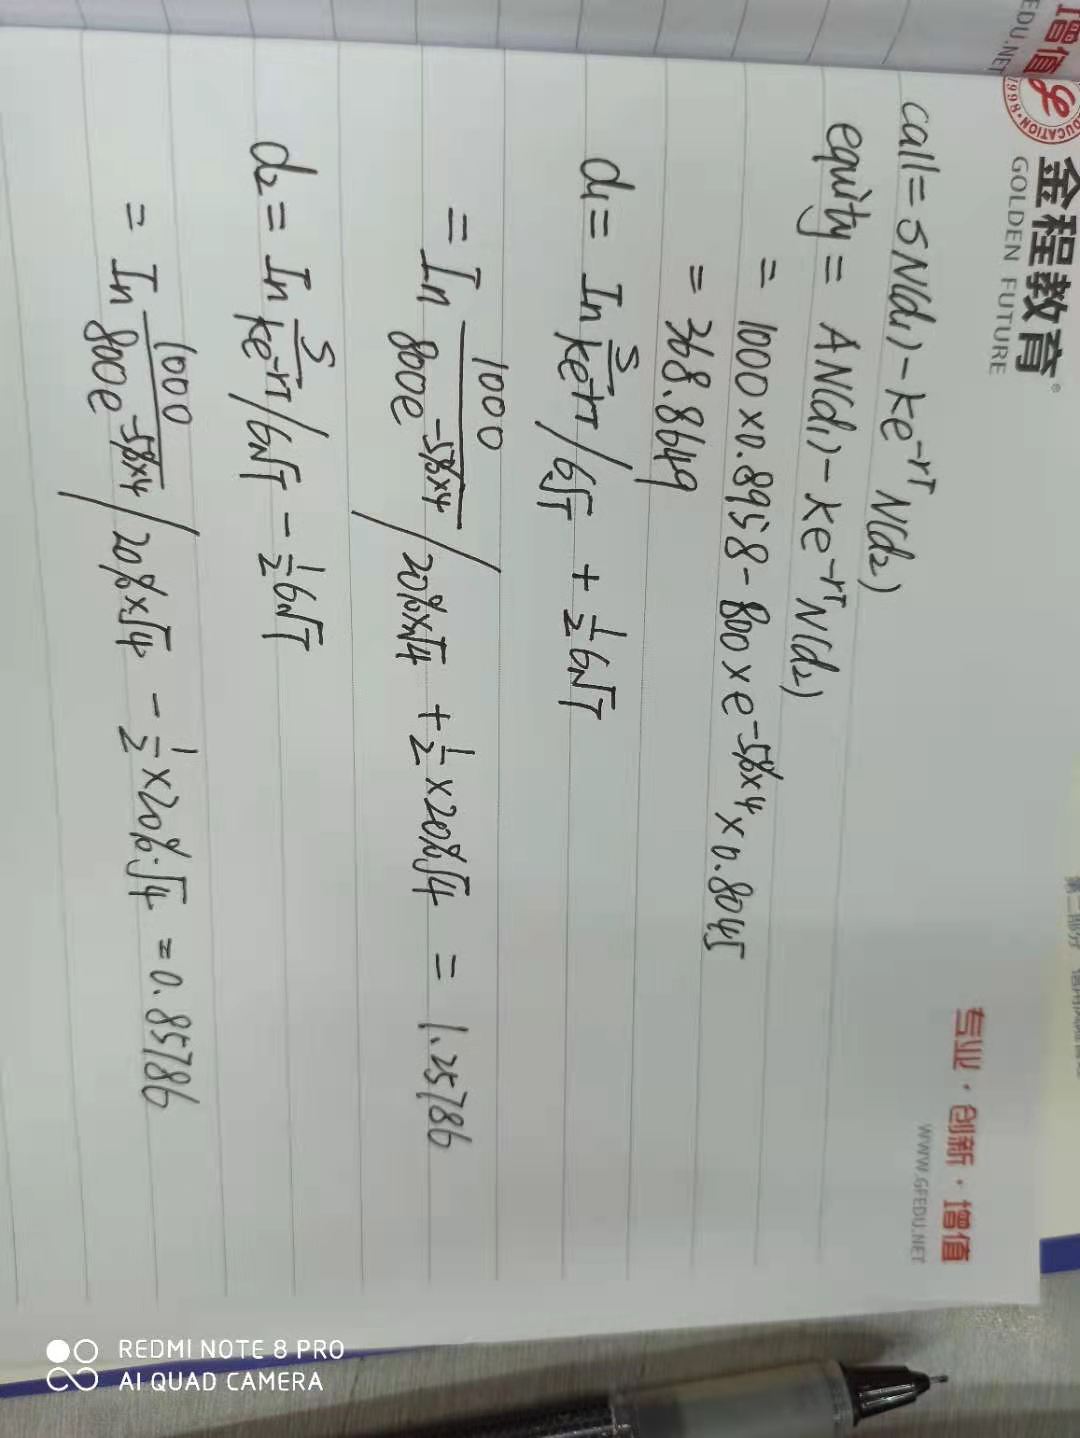 增值
EDU.NET
EDUCATION
1998
金程教育
GOLDEN FUTURE
专业·创新·增值
WWW.GFEDU.NET
第二部分
call = SN(d₁) - Ke^-rT N(d₂)
equity = AN(d₁) - Ke^-rT N(d₂)
= 1000 × 0.8958 - 800 × e^-5%×4 × 0.8045
= 368.8649
d₁ = In S/Ke^-rT / σ√T + 1/2 σ√T
= In 1000/800e^-5%×4 / 20%×√4 + 1/2 × 20%√4 = 1.25786
d₂ = In S/Ke^-rT / σ√T - 1/2 σ√T
= In 1000/800e^-5%×4 / 20%×√4 - 1/2 × 20%·√4 = 0.85786
REDMI NOTE 8 PRO
AI QUAD CAMERA